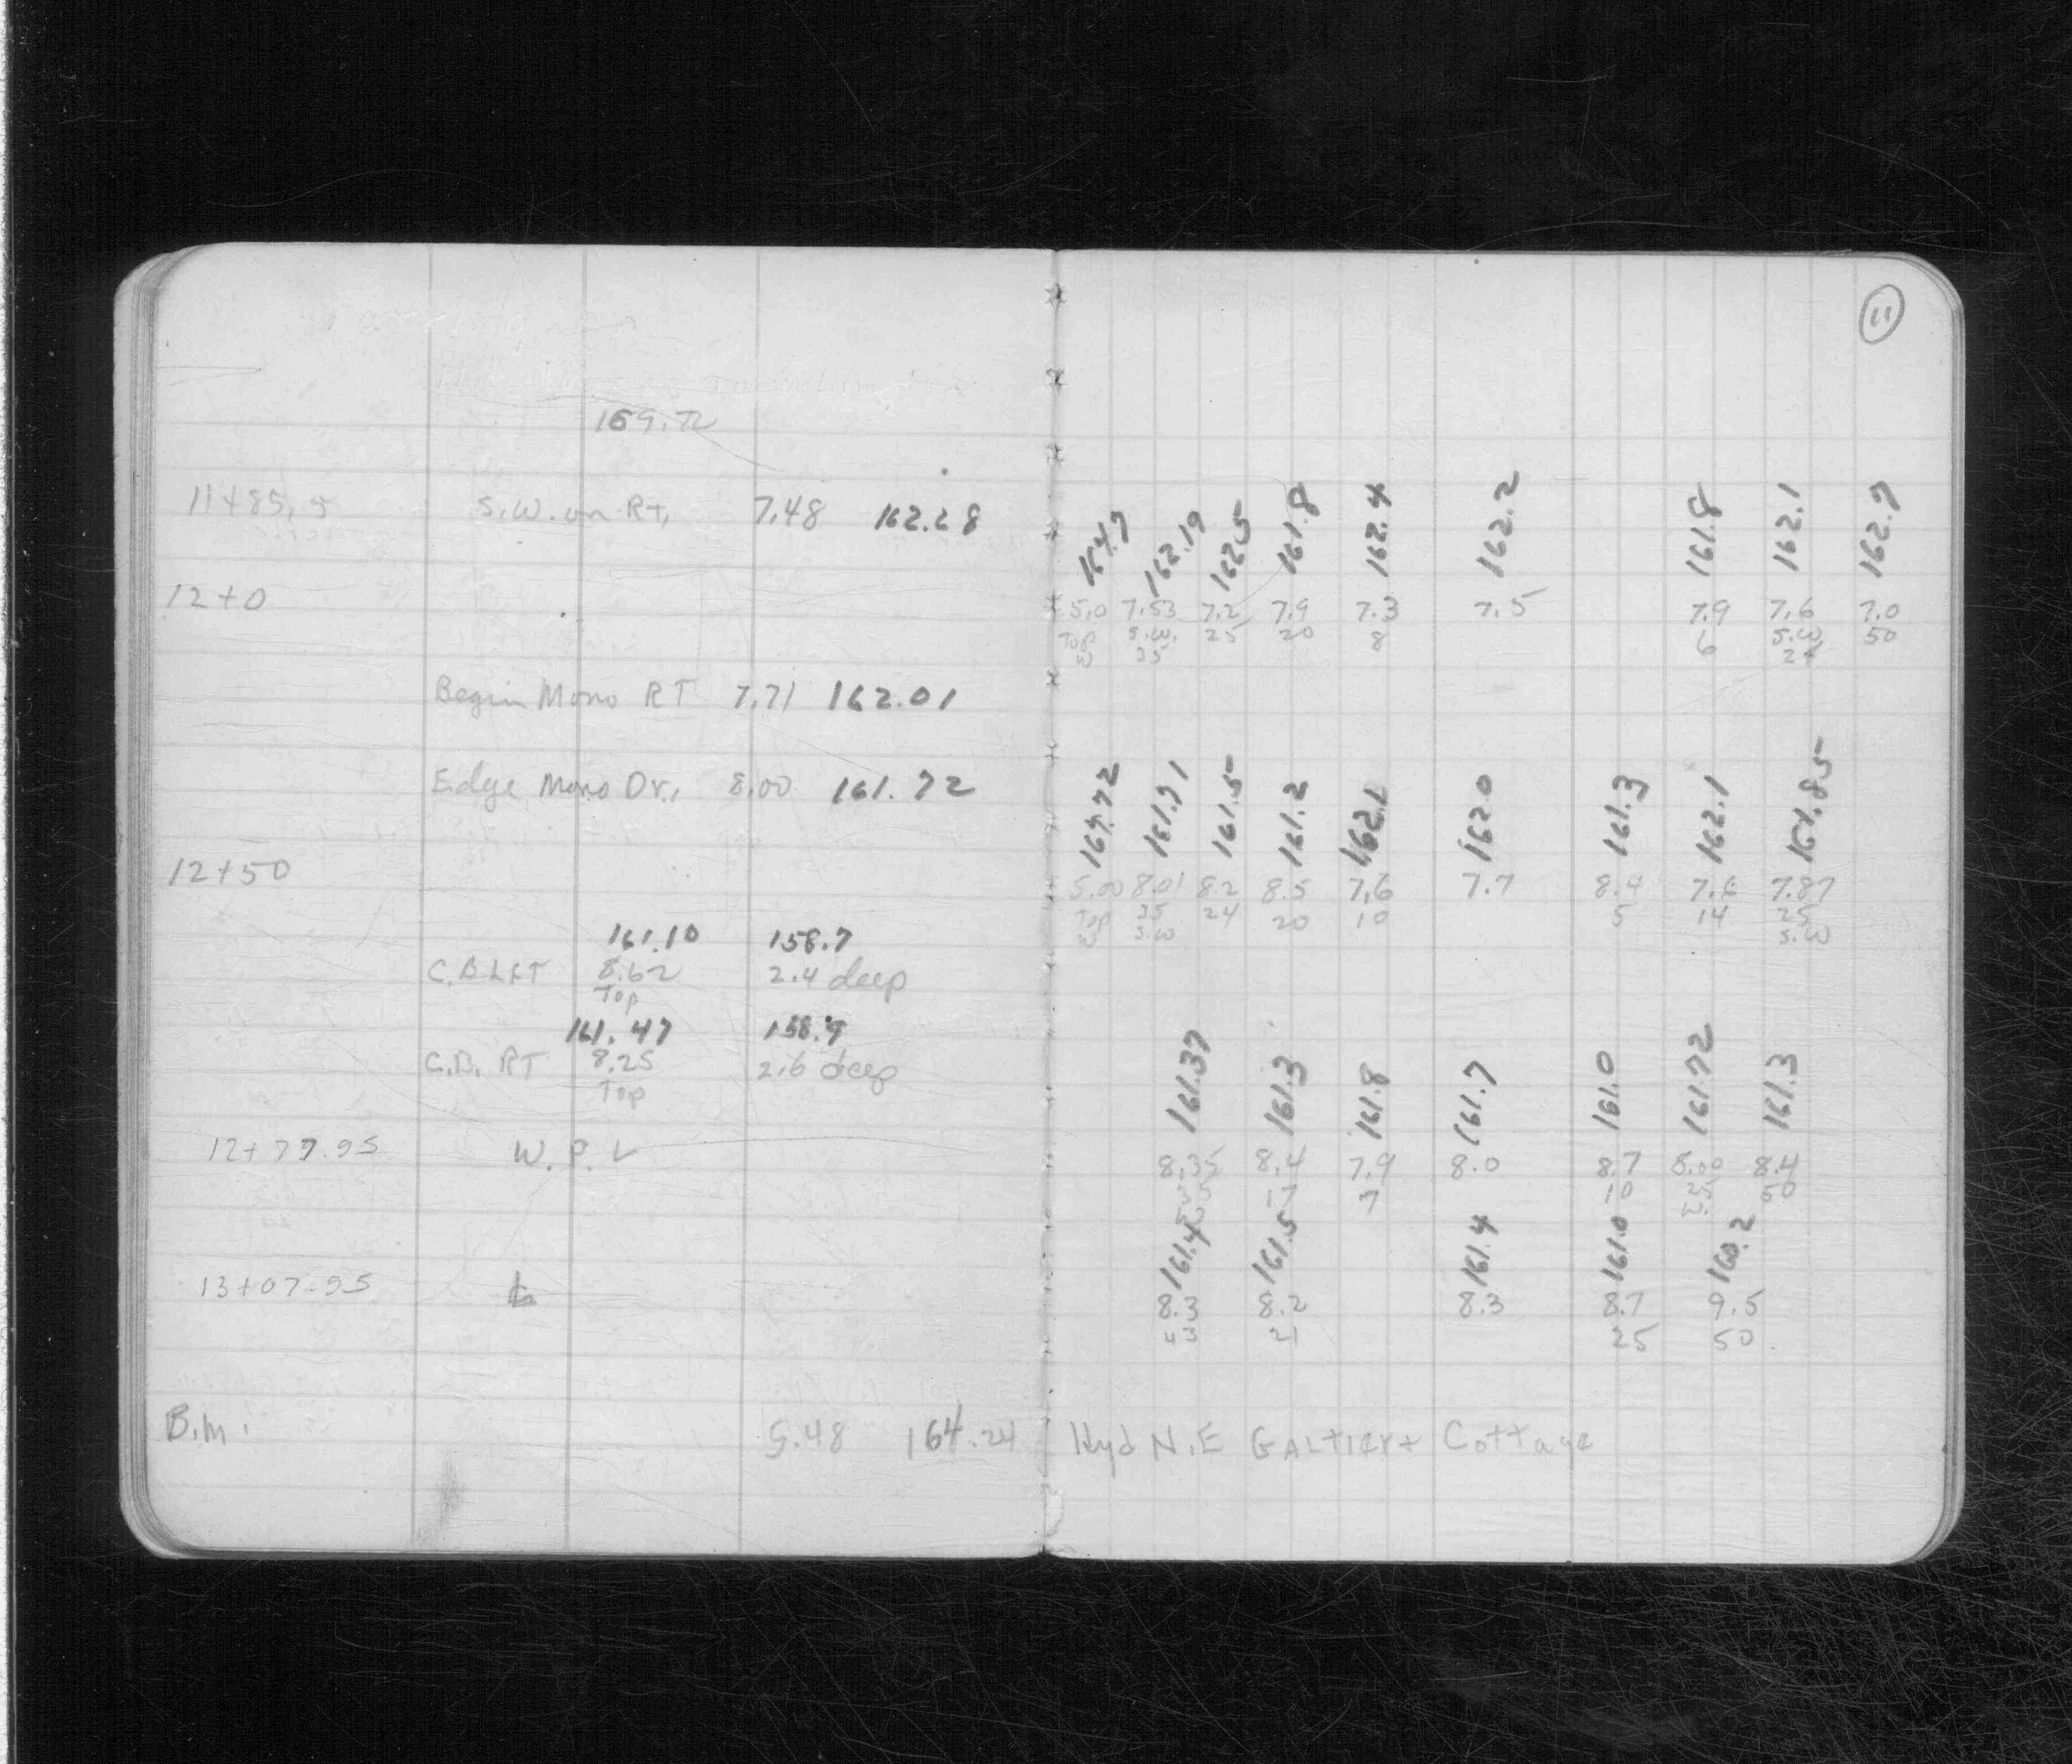 11
169.72
11+85.5 S.W. on RT. 7.48 162.28
164.7 162.19 162.5 161.8 162.4 162.2 161.8 162.1 162.7
12+0 5.0 7.53 7.2 7.9 7.3 7.5 7.9 7.6 7.0
Top S.W. 25 20 8 6 S.W. 50
W 25
Begin Mono RT 7.71 162.01
Edge Mono Dr. 8.00 161.72
164.72 161.71 161.5 161.2 162.1 162.0 161.3 162.1 161.85
12+50 5.00 8.01 8.2 8.5 7.6 7.7 8.4 7.6 7.87
Top 25 24 20 10 5 14 25
W S.W S.W
161.10 158.7
C.B LFT 8.62 2.4 deep
Top
161.47 158.9
C.B. RT 8.25 2.6 deep
Top
161.37 161.3 161.8 161.7 161.0 161.72 161.3
12+77.95 W.P.L 8.35 8.4 7.9 8.0 8.7 8.00 8.4
7 10 50
161.4 161.5 161.4 161.0 160.2
13+07.95 8.3 8.2 8.3 8.7 9.5
43 21 25 50
B.M. 5.48 164.24 Hyd N.E Galtiert Cottage